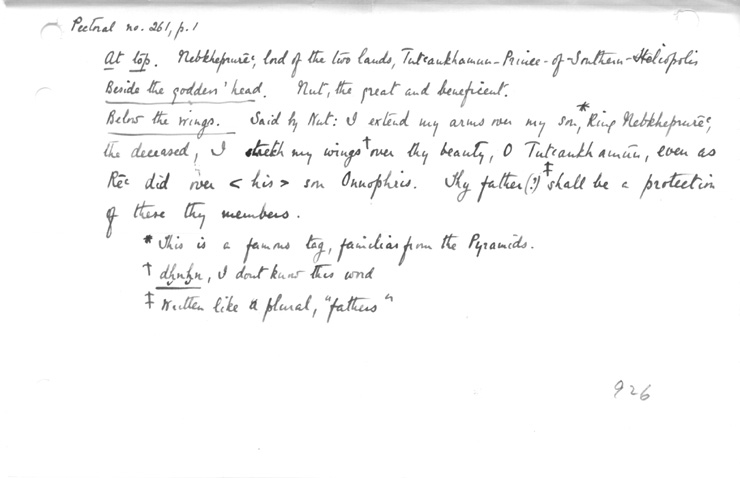 Pectoral no. 261, p.1
At top. Nebkheprurēꜥ, lord of the two lands, Tutꜥankhamun-Prince-of-Southern-Heliopolis
Beside the goddess' head. Nut, the great and beneficent.
Below the wings. Said by Nut: I extend my arms over my son,* King Nebkheprurēꜥ,
the deceased, I stretch my wings† over thy beauty, O Tutꜥankhamūn, even as
Rēꜥ did over <his> son Onnophris. Thy father(?)‡ shall be a protection
of these thy members.
* This is a famous tag, familiar from the Pyramids.
† dḫnḫn, I dont know this word
‡ Written like a plural, "fathers"
926